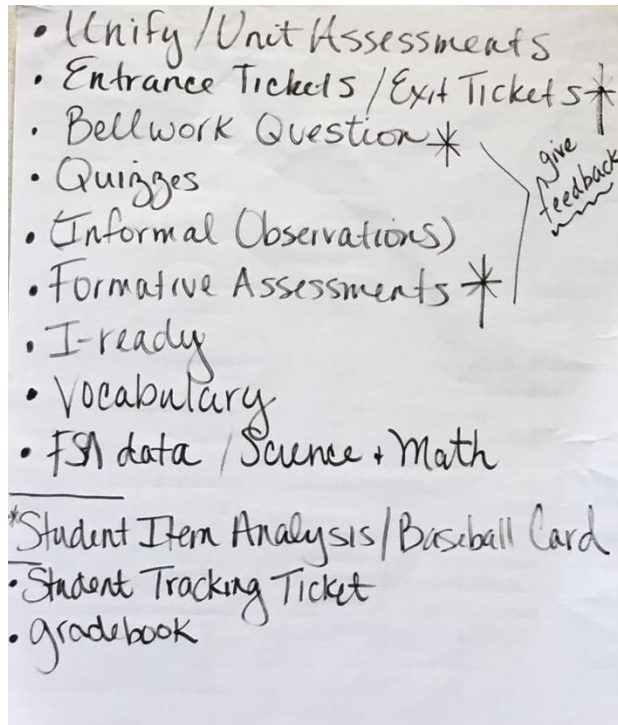 • Unify / Unit Assessments
• Entrance Tickets / Exit Tickets *
• Bellwork Question *
give
feedback
• Quizzes
• (Informal Observations)
• Formative Assessments *
• I-ready
• Vocabulary
• FSA data / Science + Math
*Student Item Analysis / Baseball Card
• Student Tracking Ticket
• gradebook